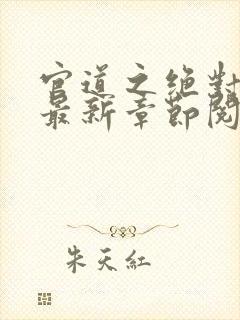 官道之绝對
最新章節閱
朱天紅